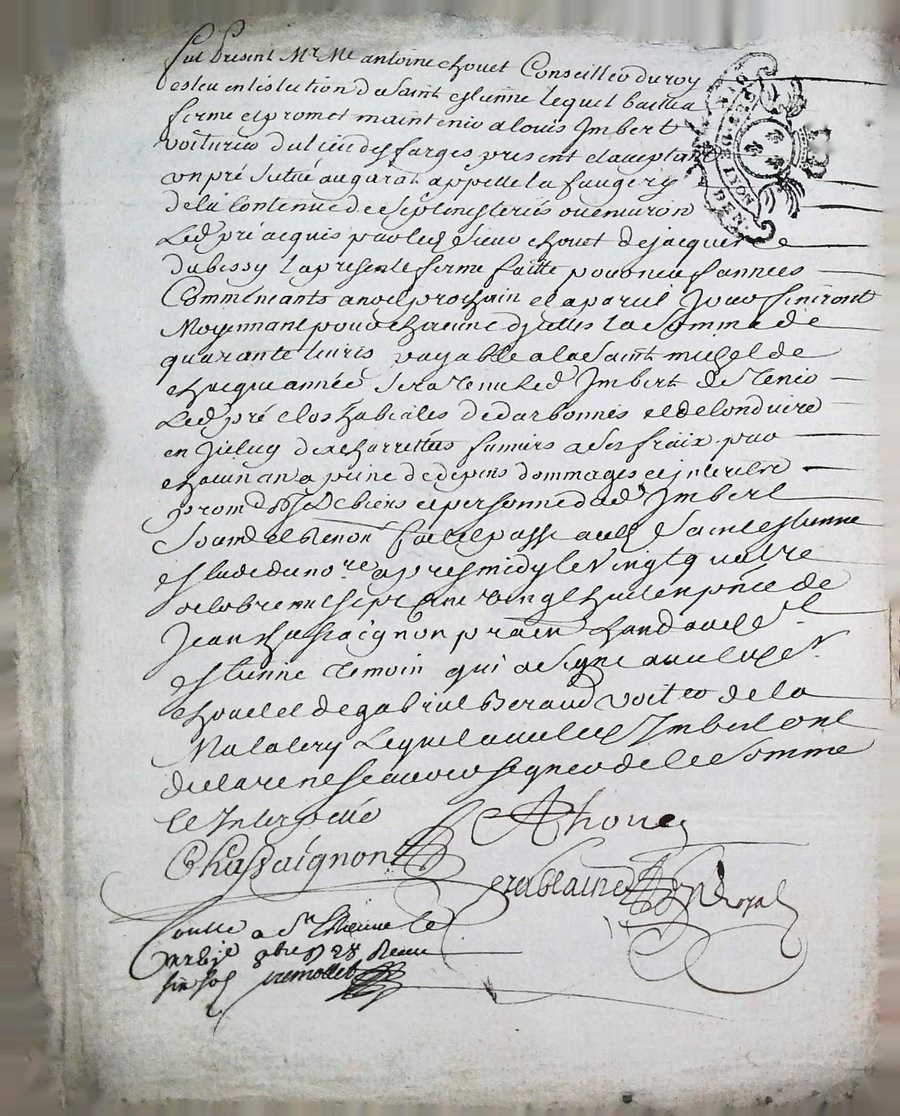 fut present Mr Me antoine chouet Conseiller du roy
esleu en leslection de saint estienne lequel bailla a
ferme et promet maintenir a louis Imbert
voiturier du lieu des farges present et acceptant
un pré situé au garat appellé la faugery
de la contenue de sept mesteries ou environ
Led pré acquis par led sieur chouet de jacques
dubessy la presente ferme faitte pour neuf années
Commencants a noel prochain et a pareil Jour finiront
Moyennant pour chacune dicelles la somme de
quarante livres payable a la saint michel de
chacque année sera tenu led Imbert de tenir
Led pré clos de et de conduire
en Jceluy dix charrettes fumiers a ses fraix par
chacun an a peine de depens dommages et jnterests
prom obl biens et personne dud Imbert
soum et Renon fait et passé aud saint estienne
estude du nore apres midy le vingt quatre
octobre mil sept cent vingt huit en pnce de
Jean Chassaignon prancien aud st
estienne temoin qui a signé avec led sr
chouet et de gabriel Beraud voiter de la
Malalery Lequel avec led Imbert ont
declaré ne scavoir signer de ce somme
et Interpellé
Chassaignon AChouet
royal
Controllé a St Estienne le
8bre 1728 Receu
six sols
GEN